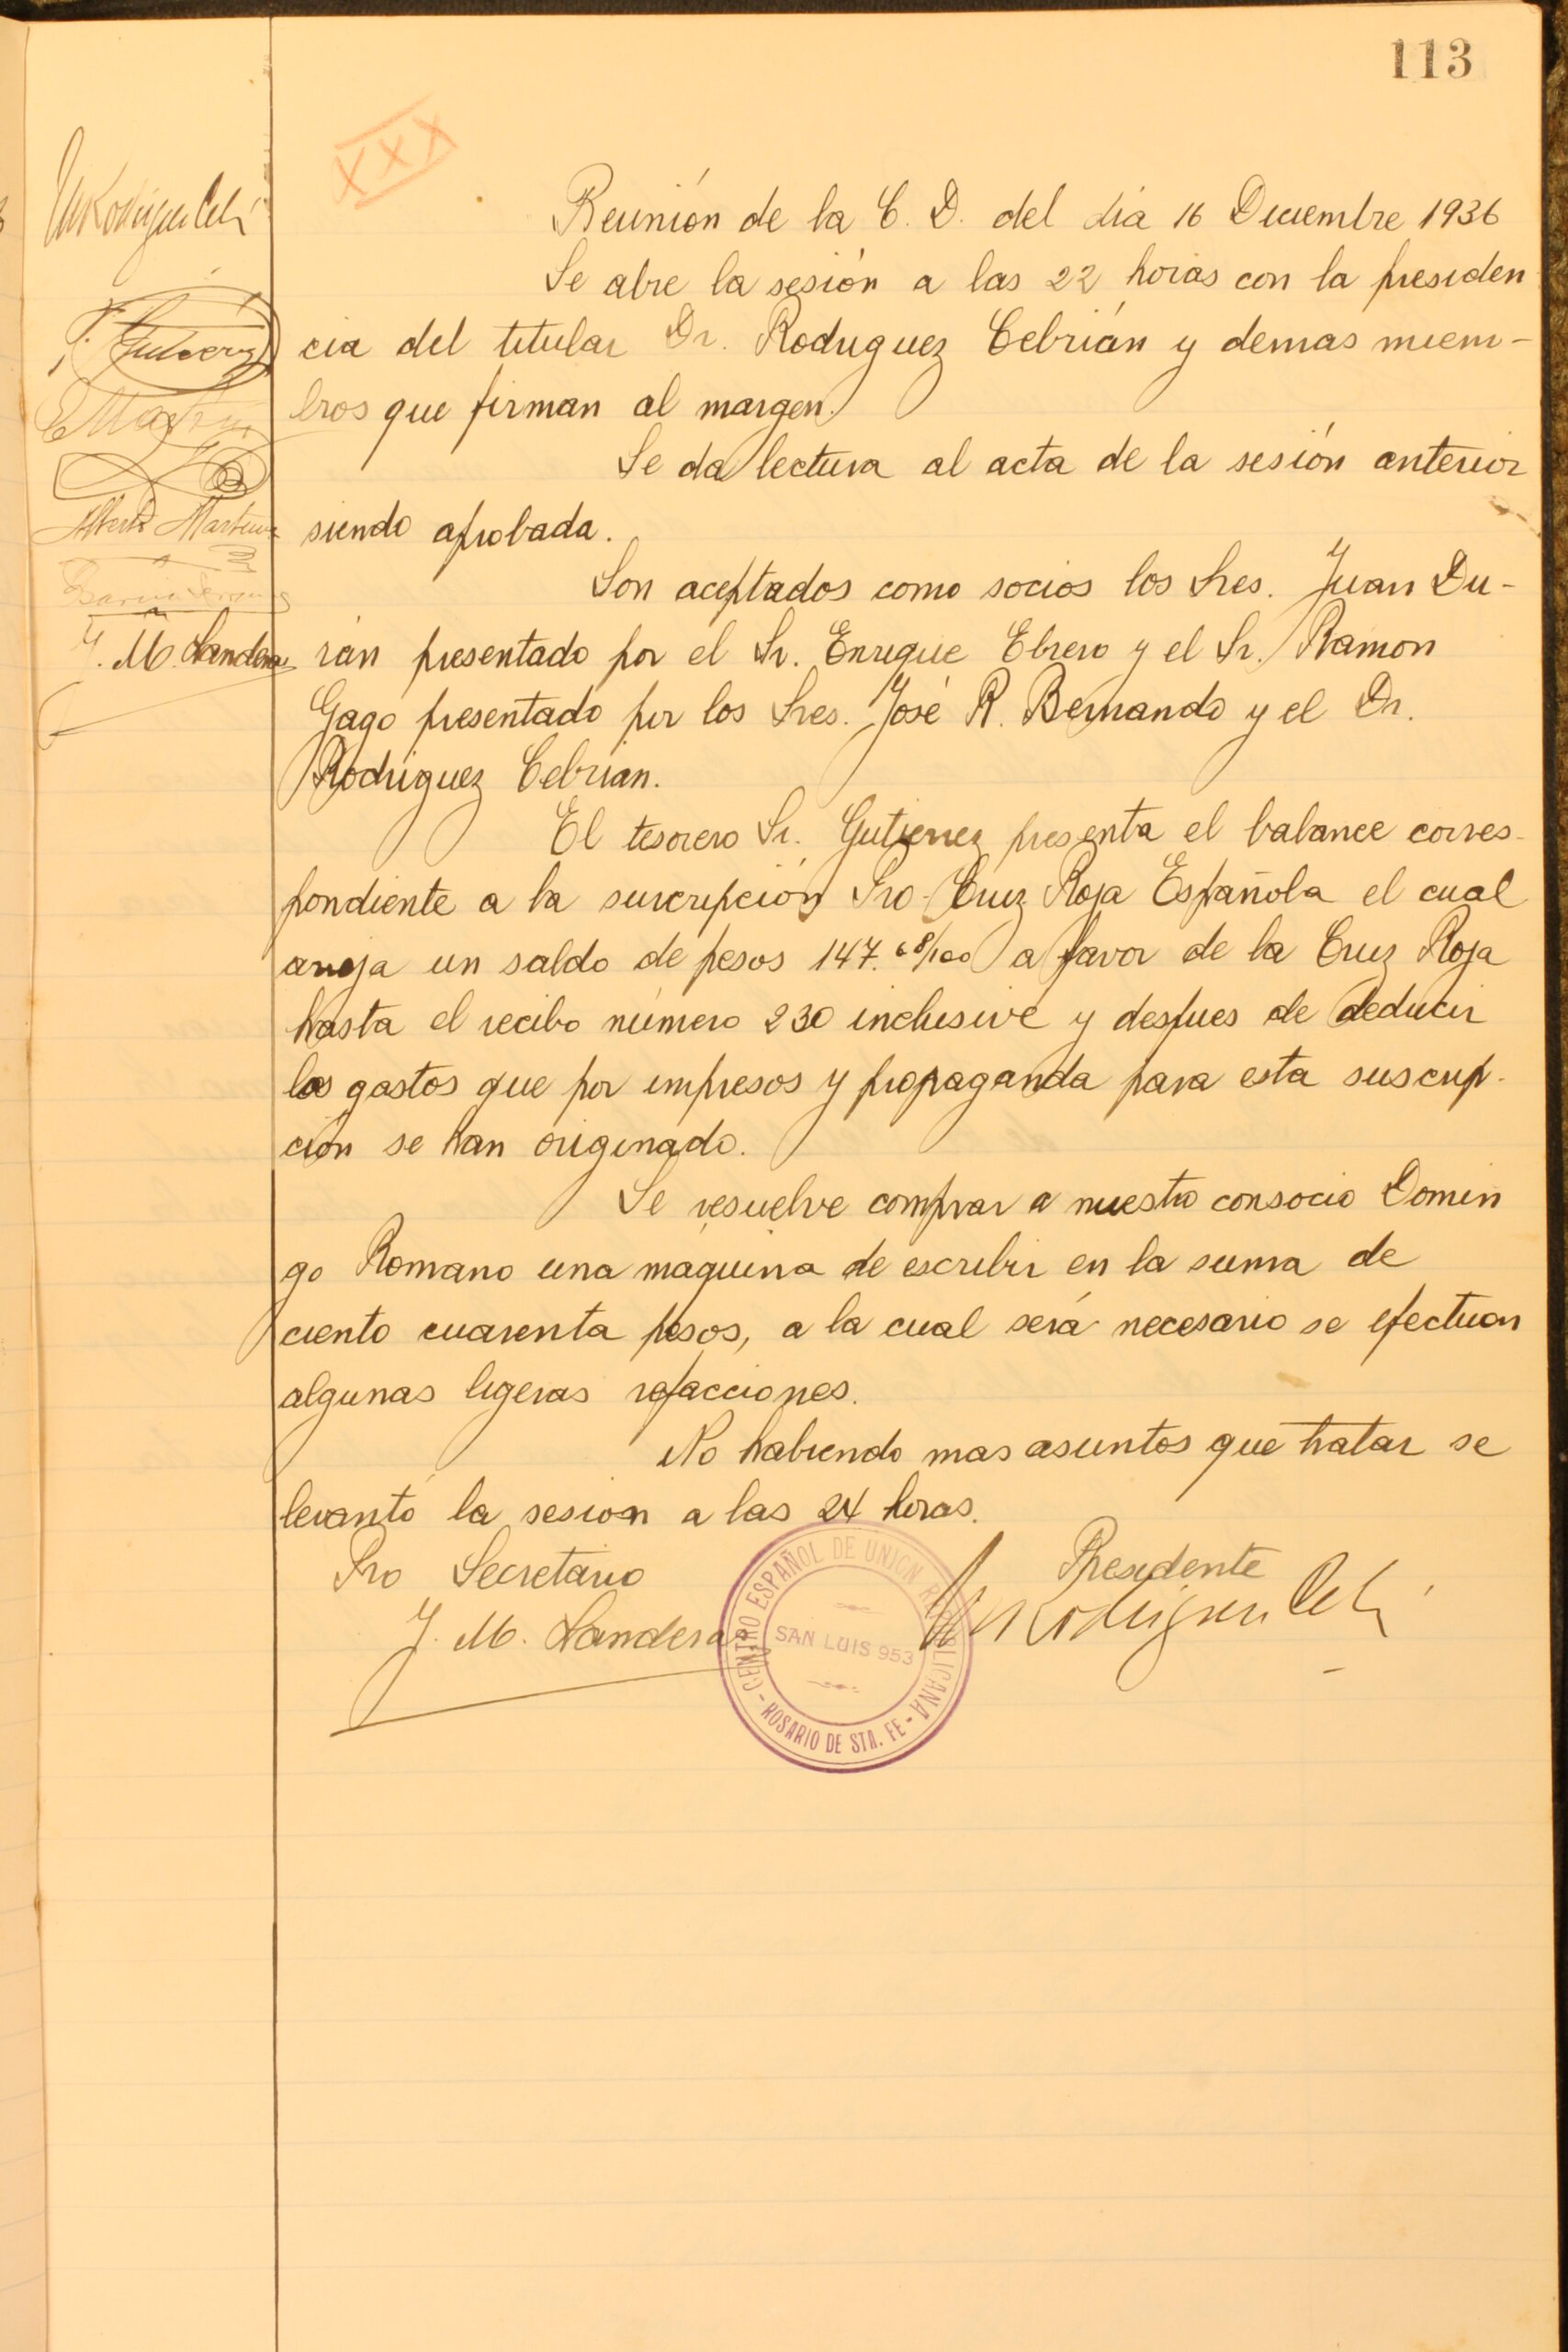 113
XXX
Reunión de la C. D. del dia 16 Diciembre 1936
Se abre la sesión a las 22 horas con la presiden
cia del titular Dr. Rodriguez Cebrián y demas miem-
bros que firman al margen.
Se da lectura al acta de la sesión anterior
siendo aprobada.
Son aceptados como socios los Sres. Juan Du-
rán presentado por el Sr. Enrique Ebrero y el Sr. Ramon
Gago presentado por los Sres. José R. Bernando y el Dr.
Rodriguez Cebrian.
El tesorero Sr. Gutierrez presenta el balance corres-
pondiente a la suscripción Pro-Cruz Roja Española el cual
arroja un saldo de pesos 147.68/100 a favor de la Cruz Roja
hasta el recibo número 230 inclusive y despues de deducir
los gastos que por impresos y propaganda para esta suscrip-
ción se han originado.
Se resuelve comprar a nuestro consocio Domin
go Romano una máquina de escribir en la suma de
ciento cuarenta pesos, a la cual será necesario se efectuan
algunas ligeras refacciones.
No habiendo mas asuntos que tratar se
levantó la sesion a las 24 horas.
Pro Secretario
Presidente
J. M. Landeras
CENTRO ESPAÑOL DE UNION REPUBLICANA
SAN LUIS 953
- ROSARIO DE STA. FE -
Alberto Martinez
J. M. Landeras